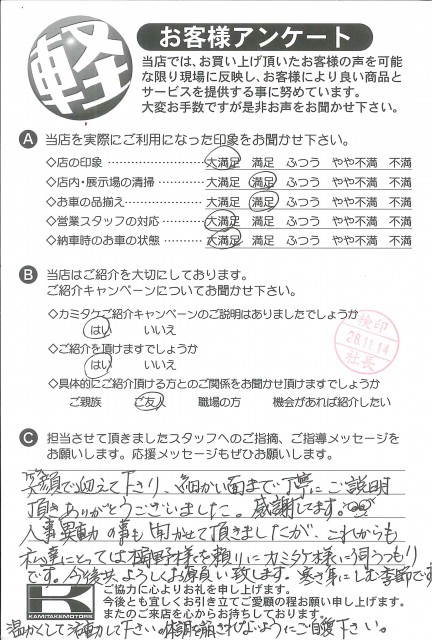 軽
お客様アンケート
当店では、お買い上げ頂いたお客様の声を可能
な限り現場に反映し、お客様により良い商品と
サービスを提供する事に努めています。
大変お手数ですが是非お声をお聞かせ下さい。
A 当店を実際にご利用になった印象をお聞かせ下さい。
◇店の印象 大満足 満足 ふつう やや不満 不満
◇店内・展示場の清掃 大満足 満足 ふつう やや不満 不満
◇お車の品揃え 大満足 満足 ふつう やや不満 不満
◇営業スタッフの対応 大満足 満足 ふつう やや不満 不満
◇納車時のお車の状態 大満足 満足 ふつう やや不満 不満
B 当店はご紹介を大切にしております。
ご紹介キャンペーンについてお聞かせ下さい。
◇カミタケご紹介キャンペーンのご説明はありましたでしょうか
はい いいえ
検印
28.11.14
社長
◇ご紹介を頂けますでしょうか
はい いいえ
◇具体的にご紹介頂ける方とのご関係をお聞かせ頂けますでしょうか
ご親族 ご友人 職場の方 機会があれば紹介したい
C 担当させて頂きましたスタッフへのご指摘、ご指導メッセージを
お願いします。応援メッセージもぜひお願いします。
笑顔で迎えて下さり、細かい面まで丁寧にご説明
頂きありがとうございました。感謝します。
人事異動の事も聞かせて頂きましたが、これからも
私達にとっては 野様を頼りにカミタケ様に伺うつもり
です。今後共、よろしくお願い致します。寒さ年にしむ季節です
KAMITAKEMOTORS
ご協力に心よりお礼を申し上げます。
今後とも宜しくお引き立てご愛顧の程お願い申し上げます。
またのご来店を心からお待ちしております。
温かくして活動して下さい。体調を崩されないようにご自愛下さい。